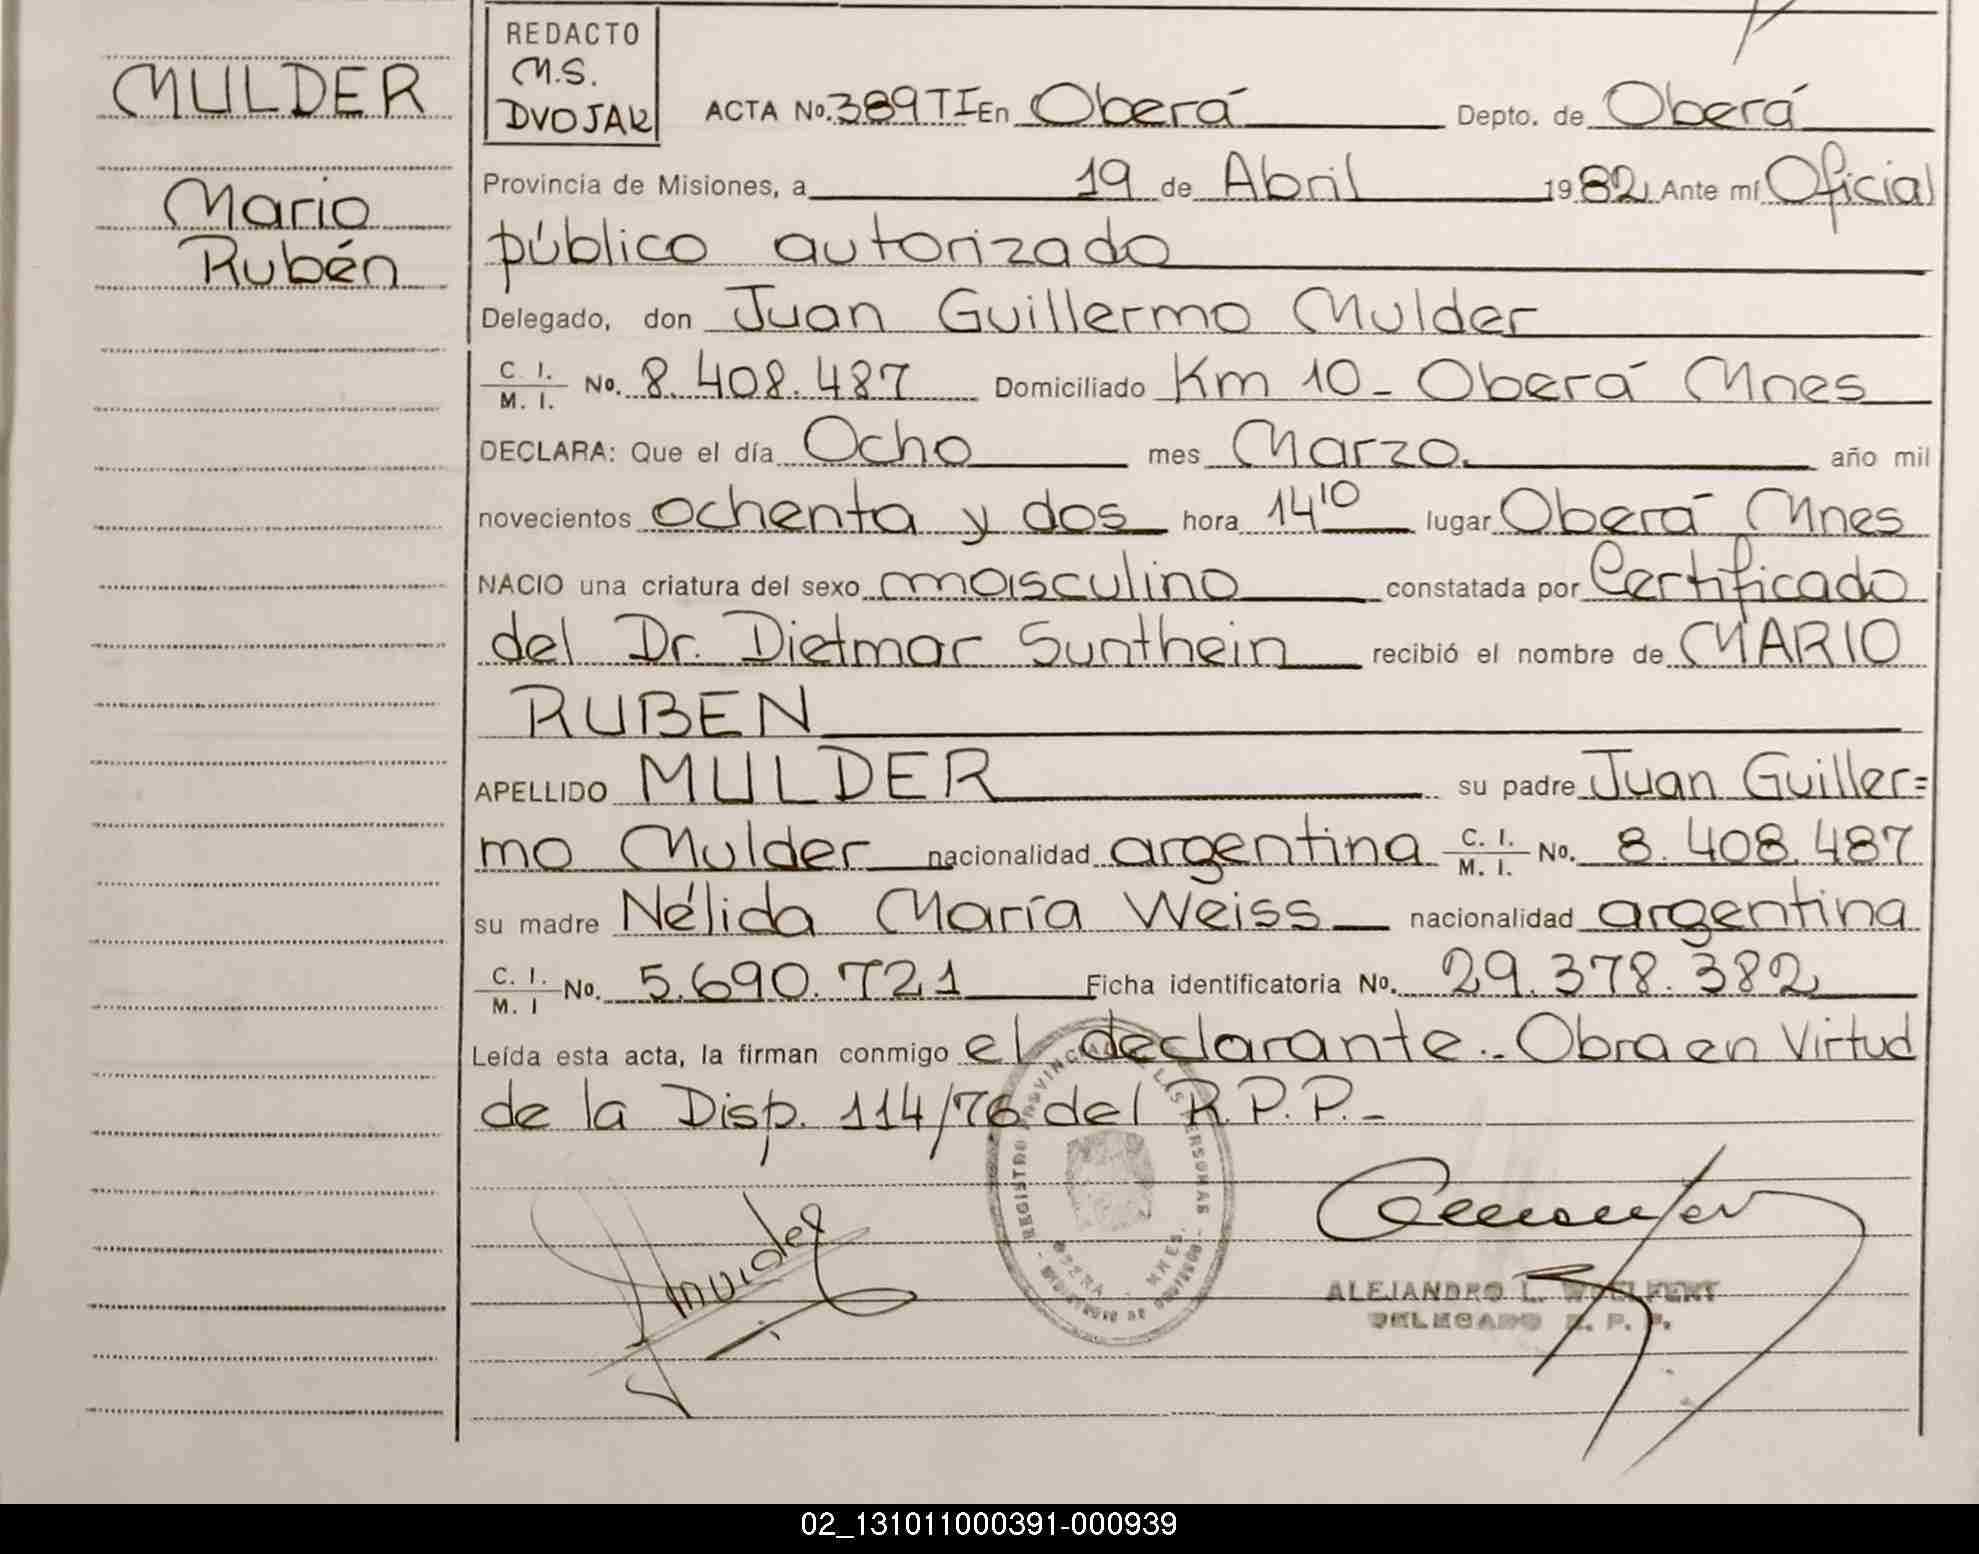 MULDER
Mario
Rubén
REDACTO
M.S.
DVOJAK
ACTA No. 389 TI En Oberá Depto. de Oberá
Provincia de Misiones, a 19 de Abril 1982 Ante mí Oficial
público autorizado
Delegado, don Juan Guillermo Mulder
C. I. / M. I. No. 8.408.487 Domiciliado Km 10 - Oberá Mnes
DECLARA: Que el día Ocho mes Marzo. año mil
novecientos ochenta y dos hora 14 10 lugar Oberá Mnes
NACIO una criatura del sexo masculino constatada por Certificado
del Dr. Dietmar Sunthein recibió el nombre de MARIO
RUBEN
APELLIDO MULDER su padre Juan Guiller=
mo Mulder nacionalidad argentina C. I. / M. I. No. 8.408.487
su madre Nélida María Weiss nacionalidad argentina
C. I. / M. I No. 5.690.721 Ficha identificatoria No. 29.378.382
Leída esta acta, la firman conmigo el declarante.- Obra en Virtud
de la Disp. 114/76 del R.P.P.-
REGISTRO PROVINCIAL DE LAS PERSONAS
OBERA - MNES.
ALEJANDRO L. WOELFERT
DELEGADO R. P. P.
02_131011000391-000939